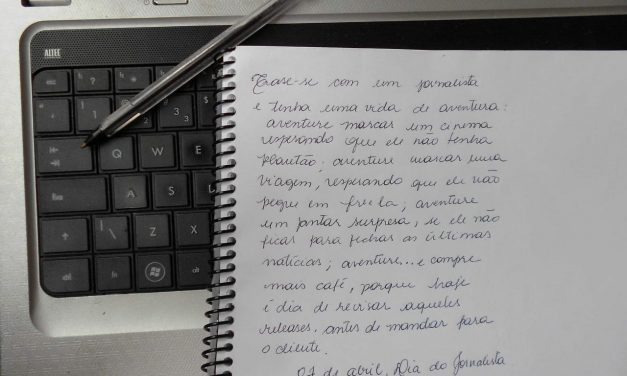 ALTEC
Q
W
A
S
Z
X
Case-se com um jornalista
e tenha uma vida de aventura:
aventure marcar um cinema
esperando que ele não tenha
plantão. aventure marcar uma
viagem, esperando que ele não
pegue um freela; aventure
um jantar surpresa, se ele não
ficar para fechar as últimas
notícias; aventure... e compre
mais café, porque hoje
é dia de revisar aqueles
releases. antes de mandar para
o cliente.
07 de abril, Dia do Jornalista